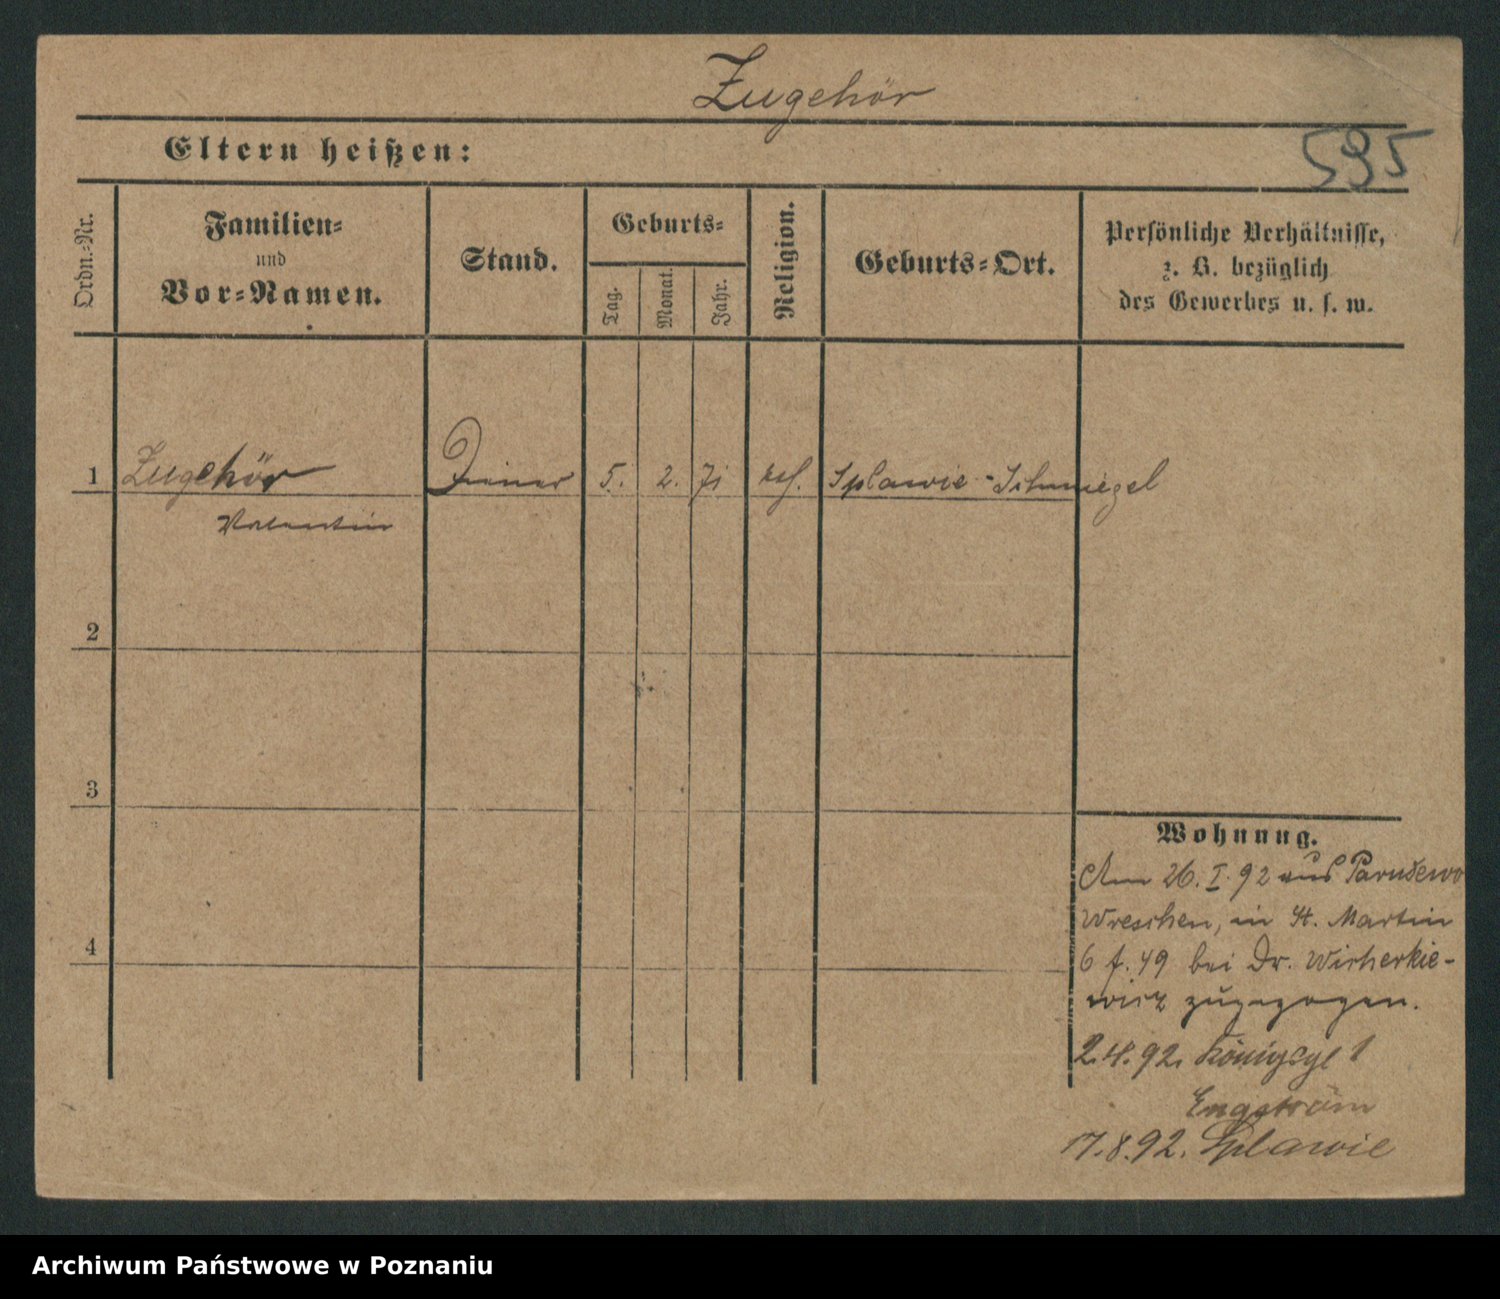 Zugehör
Eltern heißen:
595
Ordn.-Nr.
Familien-
und
Vor-Namen.
Stand.
Geburts-
Tag.
Monat.
Jahr.
Religion.
Geburts-Ort.
Persönliche Verhältnisse,
z. B. bezüglich
des Gewerbes u. s. w.
1 Zugehör Diener 5. 2. 71 Splawie-Schmiegel
Valentin
2
3
4
Wohnung.
Am 26. I. 92 aus
Wreschen, in St. Martin
6 f. 49 bei Dr. Wicherkie-
wicz zugezogen.
2.4.92. Königspl 1
Engström
17.8.92. Splawie
Archiwum Państwowe w Poznaniu